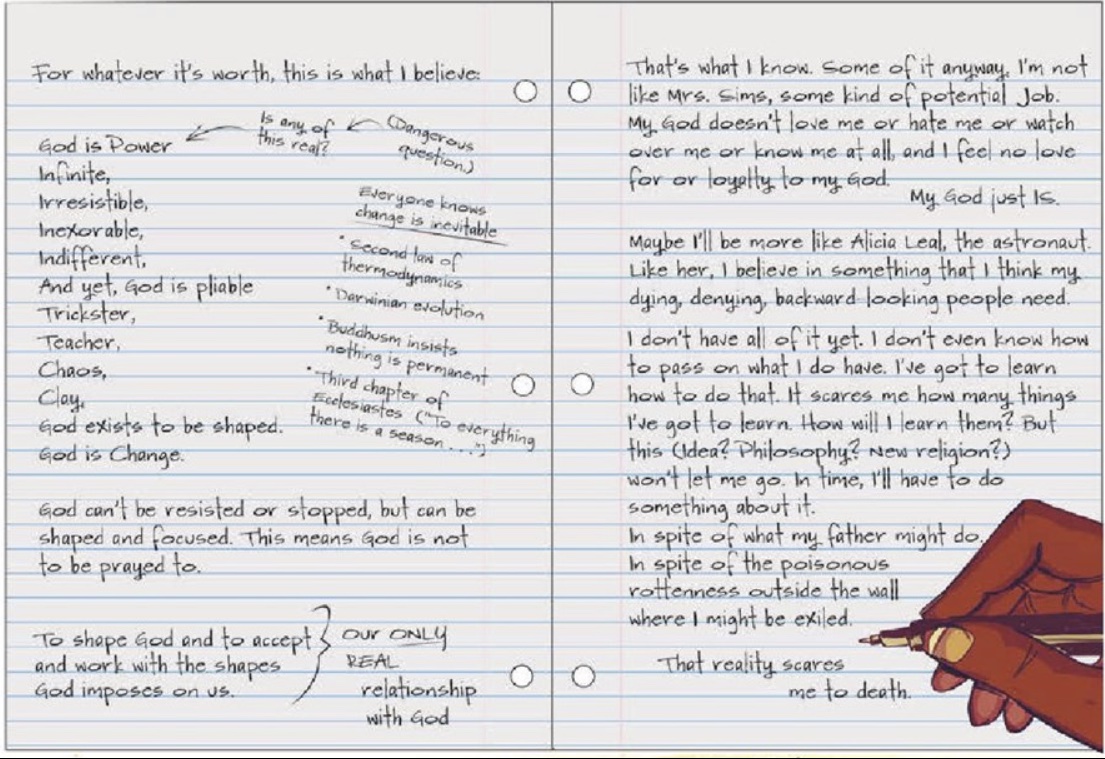 For whatever it's worth, this is what I believe:
God is Power
Infinite,
Irresistible,
Inexorable,
Indifferent,
And yet, God is pliable
Trickster,
Teacher,
Chaos,
Clay.
God exists to be shaped.
God is Change.
Is any of
this real?
(Dangerous
question.)
Everyone knows
change is inevitable
• Second law of
thermodynamics
• Darwinian evolution
• Buddhusm insists
nothing is permanent
• Third chapter of
Ecclesiastes ("To everything
there is a season . . .")
God can't be resisted or stopped, but can be
shaped and focused. This means God is not
to be prayed to.
To shape God and to accept
and work with the shapes
God imposes on us.
OUR ONLY
REAL
relationship
with God
That's what I know. Some of it anyway. I'm not
like Mrs. Sims, some kind of potential Job.
My God doesn't love me or hate me or watch
over me or know me at all, and I feel no love
for or loyalty to my God.
My God just IS.
Maybe I'll be more like Alicia Leal, the astronaut.
Like her, I believe in something that I think my
dying, denying, backward looking people need.
I don't have all of it yet. I don't even know how
to pass on what I do have. I've got to learn
how to do that. It scares me how many things
I've got to learn. How will I learn them? But
this (Idea? Philosophy? New religion?)
won't let me go. In time, I'll have to do
something about it.
In spite of what my father might do.
In spite of the poisonous
rottenness outside the wall
where I might be exiled.
That reality scares
me to death.